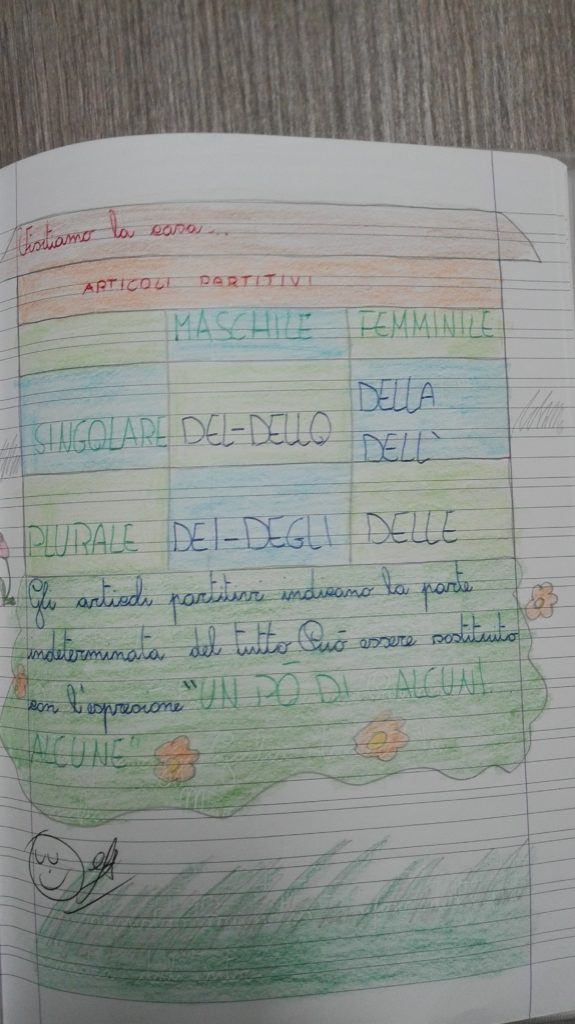 Visitiamo la casa...
ARTICOLI PARTITIVI
MASCHILE FEMMINILE
SINGOLARE DEL-DELLO DELLA DELL'
PLURALE DEI-DEGLI DELLE
Gli articoli partitivi indicano la parte
indeterminata del tutto Può essere sostituito
con l'espressione "UN PÒ DI ALCUNI
ALCUNE"